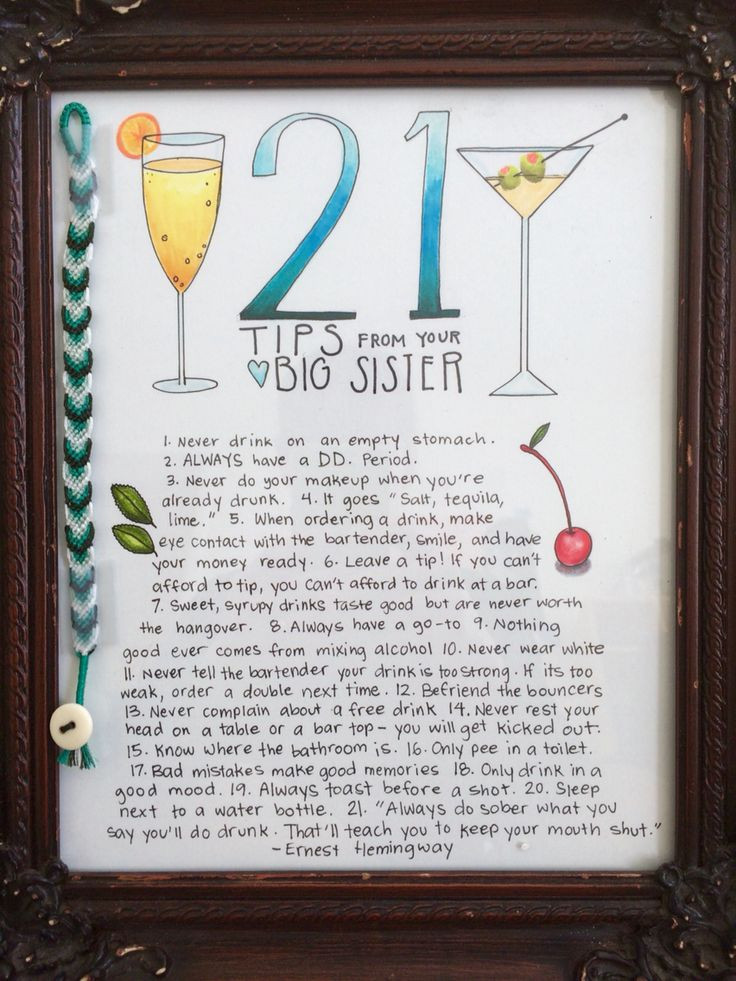 21
TIPS FROM YOUR
BIG SISTER
1. Never drink on an empty stomach.
2. ALWAYS have a DD. Period.
3. Never do your makeup when you're
already drunk. 4. It goes "Salt, tequila,
lime." 5. When ordering a drink, make
eye contact with the bartender, smile, and have
your money ready. 6. Leave a tip! If you can't
afford to tip, you can't afford to drink at a bar.
7. Sweet, syrupy drinks taste good but are never worth
the hangover. 8. Always have a go-to 9. Nothing
good ever comes from mixing alcohol 10. Never wear white
11. Never tell the bartender your drink is too strong. If its too
weak, order a double next time. 12. Befriend the bouncers
13. Never complain about a free drink 14. Never rest your
head on a table or a bar top - you will get kicked out.
15. Know where the bathroom is. 16. Only pee in a toilet.
17. Bad mistakes make good memories 18. Only drink in a
good mood. 19. Always toast before a shot. 20. Sleep
next to a water bottle. 21. "Always do sober what you
say you'll do drunk. That'll teach you to keep your mouth shut."
- Ernest Hemingway